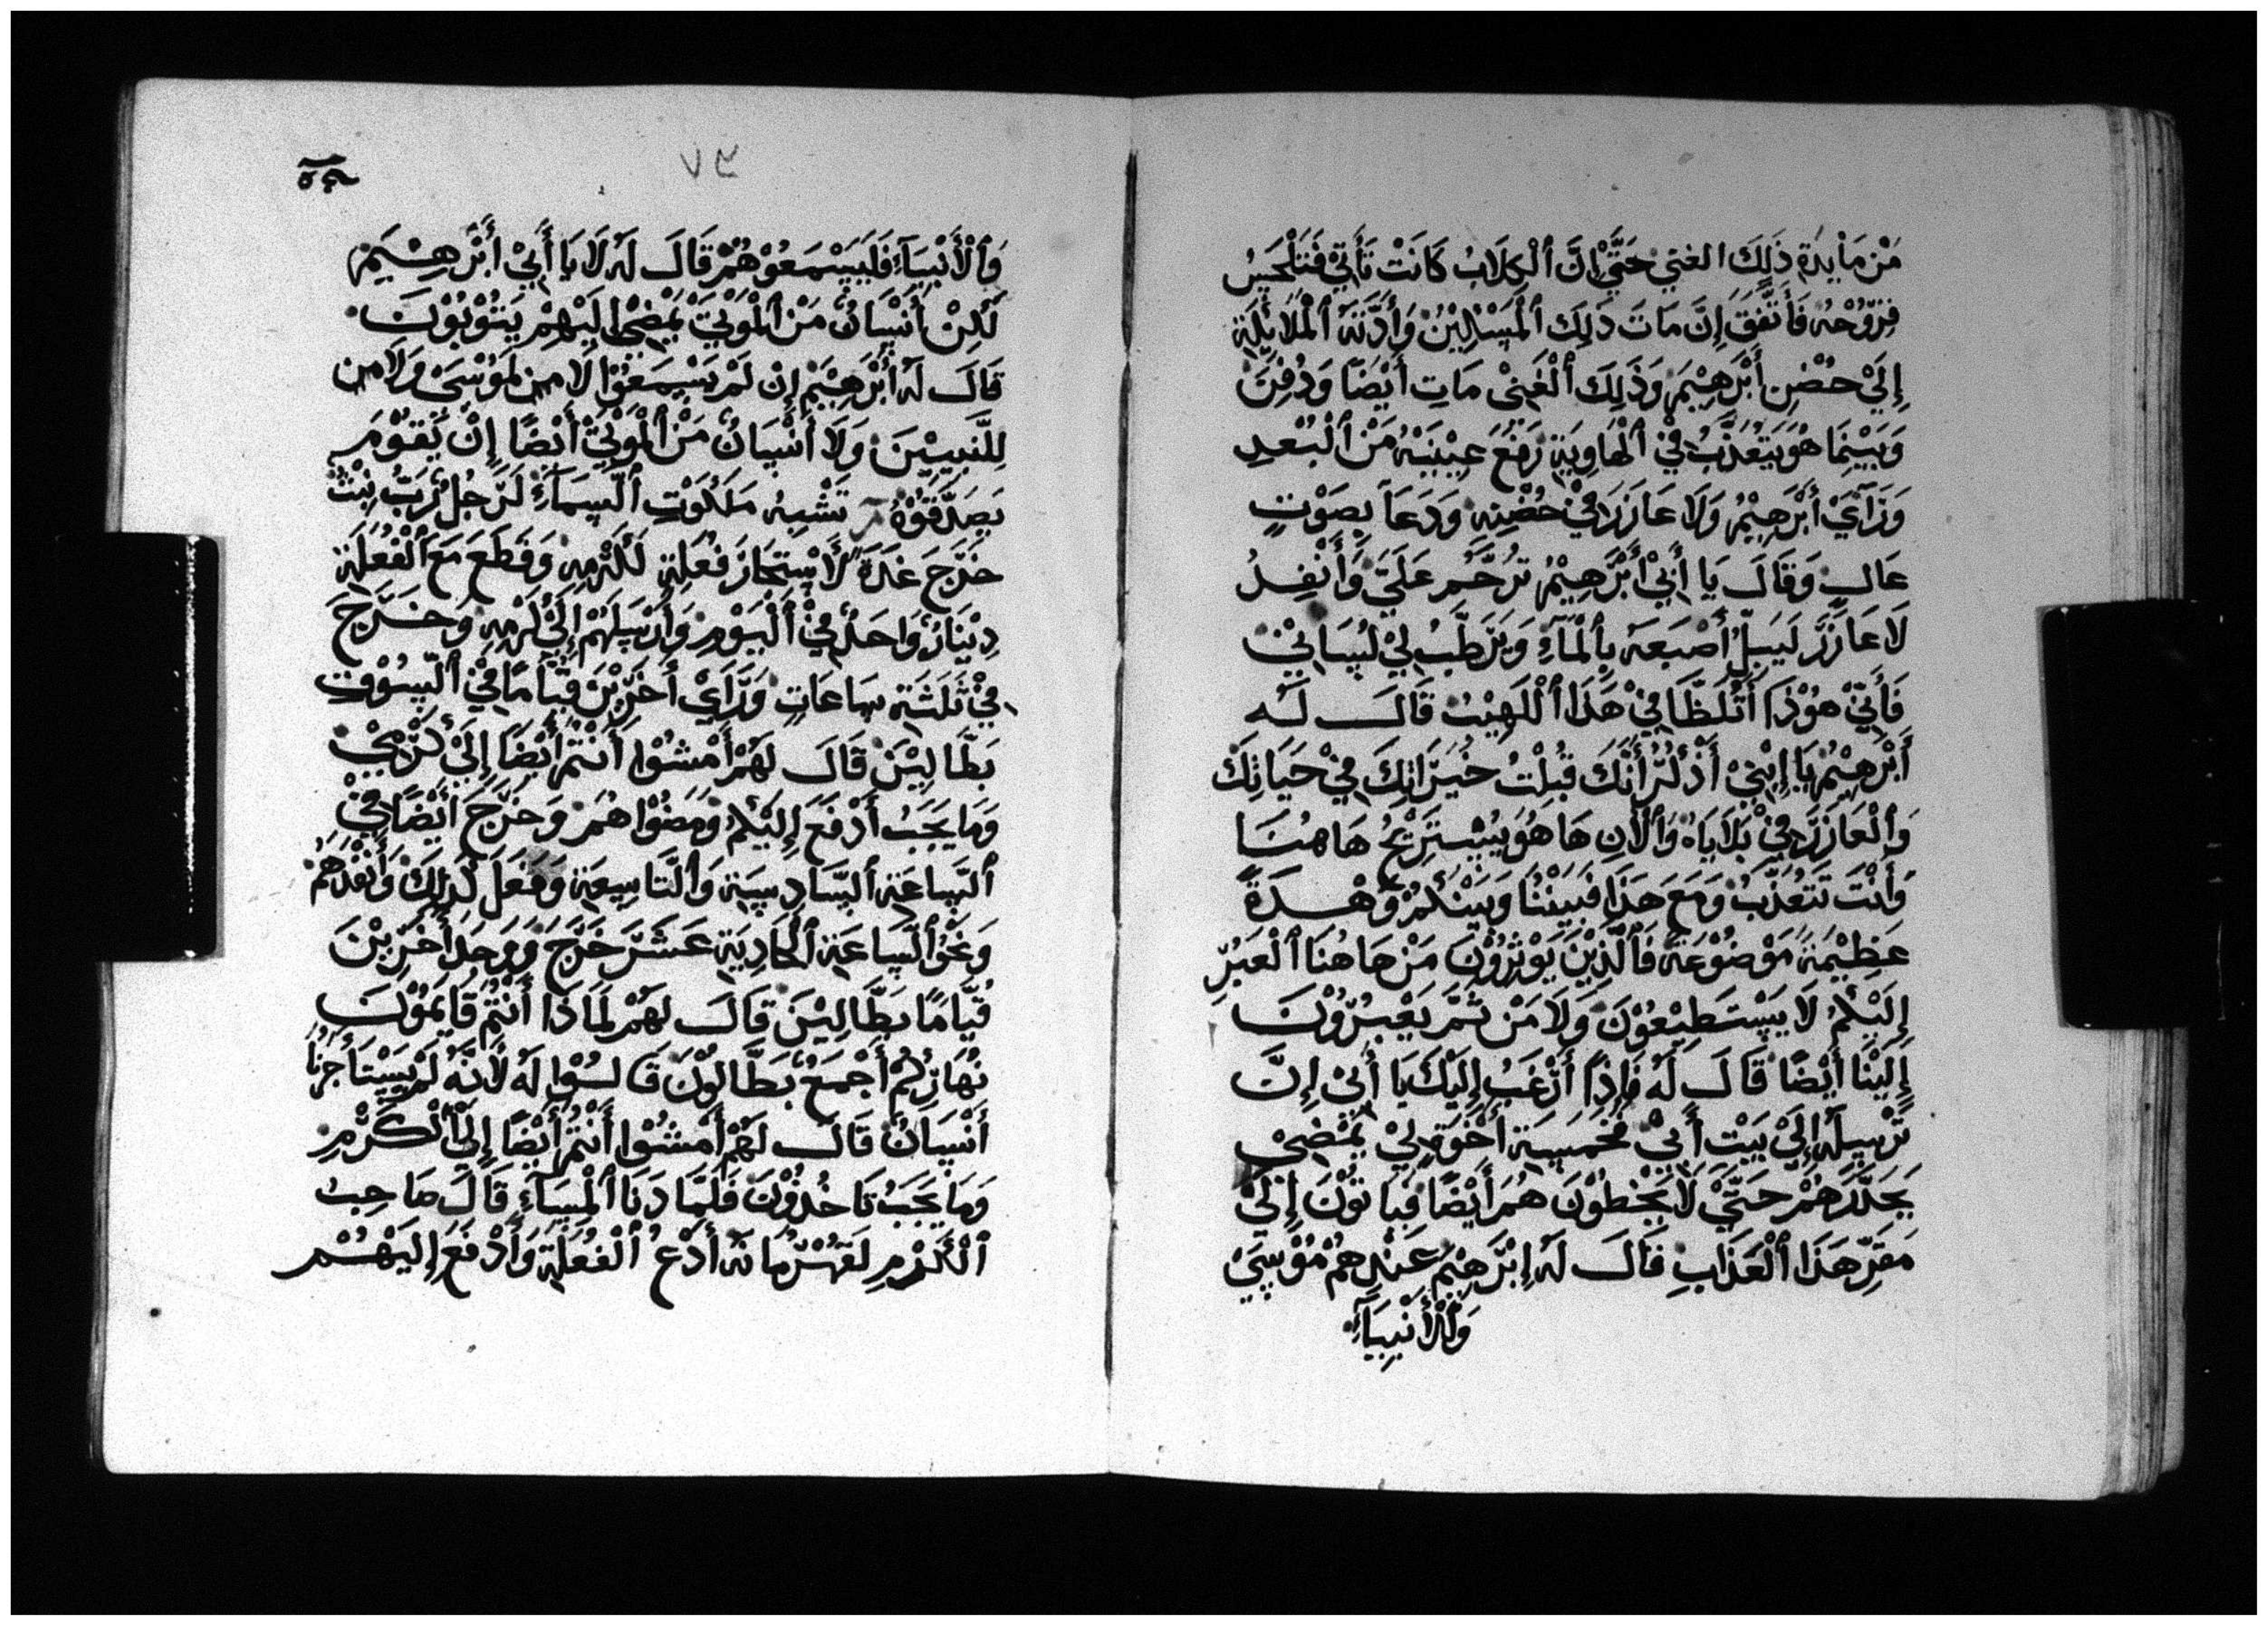 مَنْ مَايِدَةِ ذَلِكَ الغني حَتَّيْ إِنَّ ٱلْكِلَابُ كَانَتْ تَأَتِيْ فَتَلْحَسُ
قِرُوْحُه فَأَتَّفَقَ إِنَّ مَاتَ ذَلِكَ ٱلْمَسْكِيْنُ وَأَدَّتَهُ ٱلْمَلَائِكَةِ
إِلَيْ حُضْنِ أَبْرَهِيْمَ وَذَلِكَ ٱلْغَنِيْ مَاتِ أَيْضًا وَدُفِنَ
وَبَيْنِمَا هْوَ يَتَعُذَّبُ فِيْ ٱلْهَاوِيَةِ رَفَعَ عِيْنَيْهُ مَنْ ٱلْبُعْدِ
وَرَآيَ أَبْرَهِيْمُ وَلَا عَازَرَ فِيْ حُضْنِهِ وَدَعَا بِصَوْتٍ
عَالٍ وَقَالَ يَا أَبِيْ أَبْرَهِيْمُ تَرَحَّمْ عَلَيَّ وَأَنْفِدُ
لَا عَازَرَ لَيَبِلَّ أَصْبَعَهُ بِٱلْمَآءِ وَيَرَطَّبُ لِيْ لُسَانِيْ
فَأَنِّيْ هُوْذَا أَتَلَظَّا فِيْ هَذَا ٱللَهِيْبُ قَالَ لَه
أَبْرَهِيْمُ يَا إِبْنِيْ أَذْكُرْ أَنَّكَ قَبِلْتُ خَيْرَاتِكَ فِيْ حَيَاتِكَ
وَٱلْعَازَرَ فِيْ بَلَايَاهُ وَٱلْأَنِ هَا هُوَ يُسْتَرِيْحُ هَاهُنَا
وَأَنْتَ تَتَعُذَّبُ وَمَعَ هَذَا فَبَيْنَنَا وَبَيْنَكُمْ وَهْدَةً
عَظِيْمَةً مَوْضُوْعَةً فَٱلَّذِيْنَ يَوْثِرُوْنَ مَنْ هَاهُنَا ٱلْعَبُرِ
إِلَيْكُمُ لَا يَسْتَطِيْعُوْنَ وَلَا مَنْ ثَمَّ يَعْبُرُوْنَ
إِلَيْنَا أَيْضًا قَالَ لَهُ فَإِذًا أَرْغَبُ إِلَيْكَ يَا أَبِيْ إِنَّ
تَرْسِلَهُ إِلَيْ بَيْتْ أَبِيْ فَخَمْسَةَ أَخْوَةٍ لِيْ يَمْضِيْ
يَحَذَّرَهُمْ حَتَّيْ لَا يَخْطُوْنَ هُمْ أَيْضًا فَيَاتُوْنَ إِلَيْ
مَقَرِّ هَذَا ٱلْعَذَابِ قَالَ لَهُ إِبْرَهِيْمُ عَنْدِهُمْ مُوْسَيْ
وَٱلْأَنْبِيَآءِ
٧٣
وَٱلْأَنْبِيَآءِ فَلَيَسْمَعُوْهُمْ قَالَ لَهُ لَا يَا أَبِيْ أَبْرَهِيْمَ
لَكِنْ أَنْسَانٌ مَنْ ٱلْمَوْتِيْ يَمْضِيْ إِلَيْهِمْ يَتُوْبُوْنَ
قَالَ لَهُ أَبْرَهِيْمُ إِنْ لَمْ يَسْمَعُوْا لَا مِن مُوْسَىْ وَلَا مِن
للنَّبِيِيْنَ وَلَا أَنْسَانٌ مَنْ ٱلْمَوْتِيْ أَيْضًا إِنْ يَقُوْمَ
يَصَدَّقُوْهُ تَشْبِهُ مَلَكُوْتِ ٱلسَمَآءِ لَرَجُلٍ رَبُّ بَيْتْ
خَرَجَ غَدَةً لَأَسْتَجَازَ فَعُلَةٍ لَكَرْمِهِ وَقَطَعَ مَعَ ٱلْفُعُلَةِ
دِيْنَارٌ وَاحَدٌ فِيْ ٱلْيَوْمِ وَأَرْسَلَهُمْ إِلَيْ كَرْمِهِ وَخَرَجَ
فِيْ ثَلَثَةِ سَاعَاتٍ وَرَّأَيْ أَخَرِيْنَ قِيَامًا فِيْ ٱلسُوْقِ
بَطَّالِيْنَ قَالَ لَهْمُ أَمْشُوْا أَنْتُمْ أَيْضًا إِلَيْ كَرْمِيْ
وَمَا يَجَبُ أَدْفَعَ إِلَيْكُمْ وَمَضُوْا هُمْ وَخَرَجَ أَيْضًا فِيْ
ٱلسَاعَةِ ٱلسَّادِسَةِ وَٱلْتَاسِعَةِ وَفَعَلَ كَذَلِكَ وَأَنْفَدَهُمْ
وَنَحْوُ ٱلسَاعَةِ ٱلْحَادِيَةِ عَشَرَ خَرَجَ وَوَجَدَ أَخَرِيْنَ
قُيَّامًا بَطَّالِيْنَ قَالَ لَهُمْ لِمَاذَا أَنْتُمُ قَايِمُوْنَ
نَهَارُكُمْ أَجْمَعُ بَطَّالُوْنَ قَالُوْا لَهُ لأَنَّهُ لَمْ يَسْتَأْجُرْنَا
أَنْسَانٌ قَالَ لَهُمْ أَمْشُوْا أَنْتُمُ أَيْضًا إِلَيْ ٱلْكَرْمِ
وَمَا يَجَبُ تَاخُذُوْنَ فَلَمَّا دَنَا ٱلْمَسَآءِ قَالَ صَاحِبُ
ٱلْكَرْمِ لَقَهْرُمَانَهُ أَدْعُ ٱلْفُعُلَةَ وَأَدْفَعَ إِلَيْهُمْ